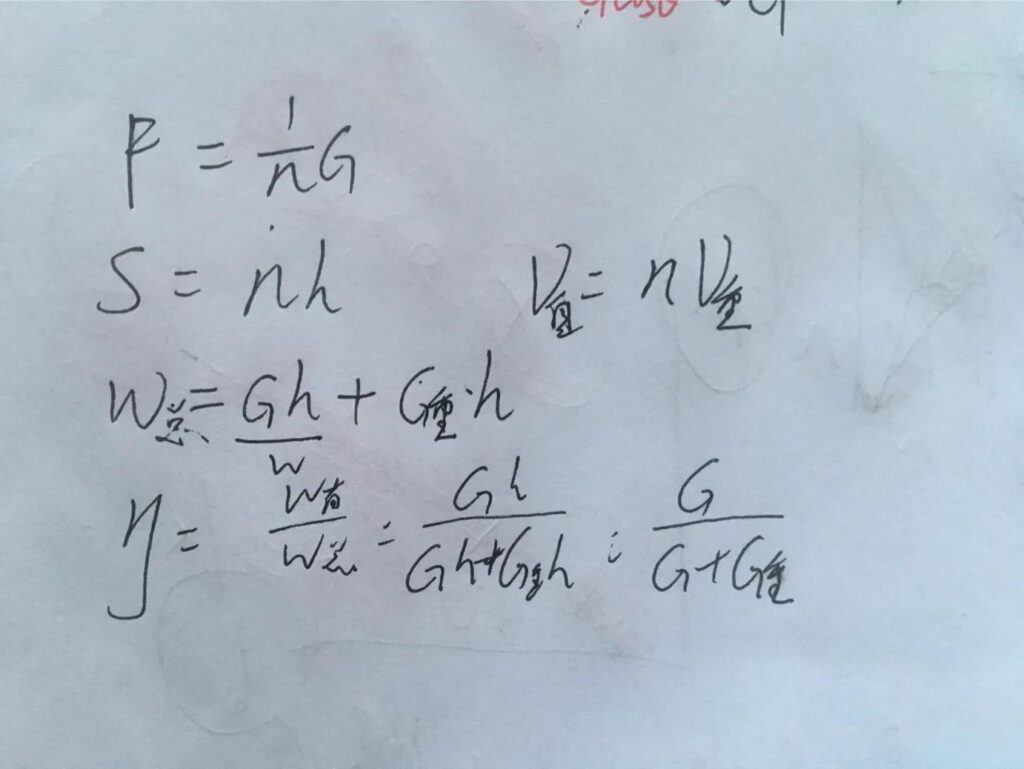 F = 1/n G
S = nh V自 = nV重
W总 = Gh + G重·h
W
η = W有/W总 = Gh/(Gh+G重h) = G/(G+G重)